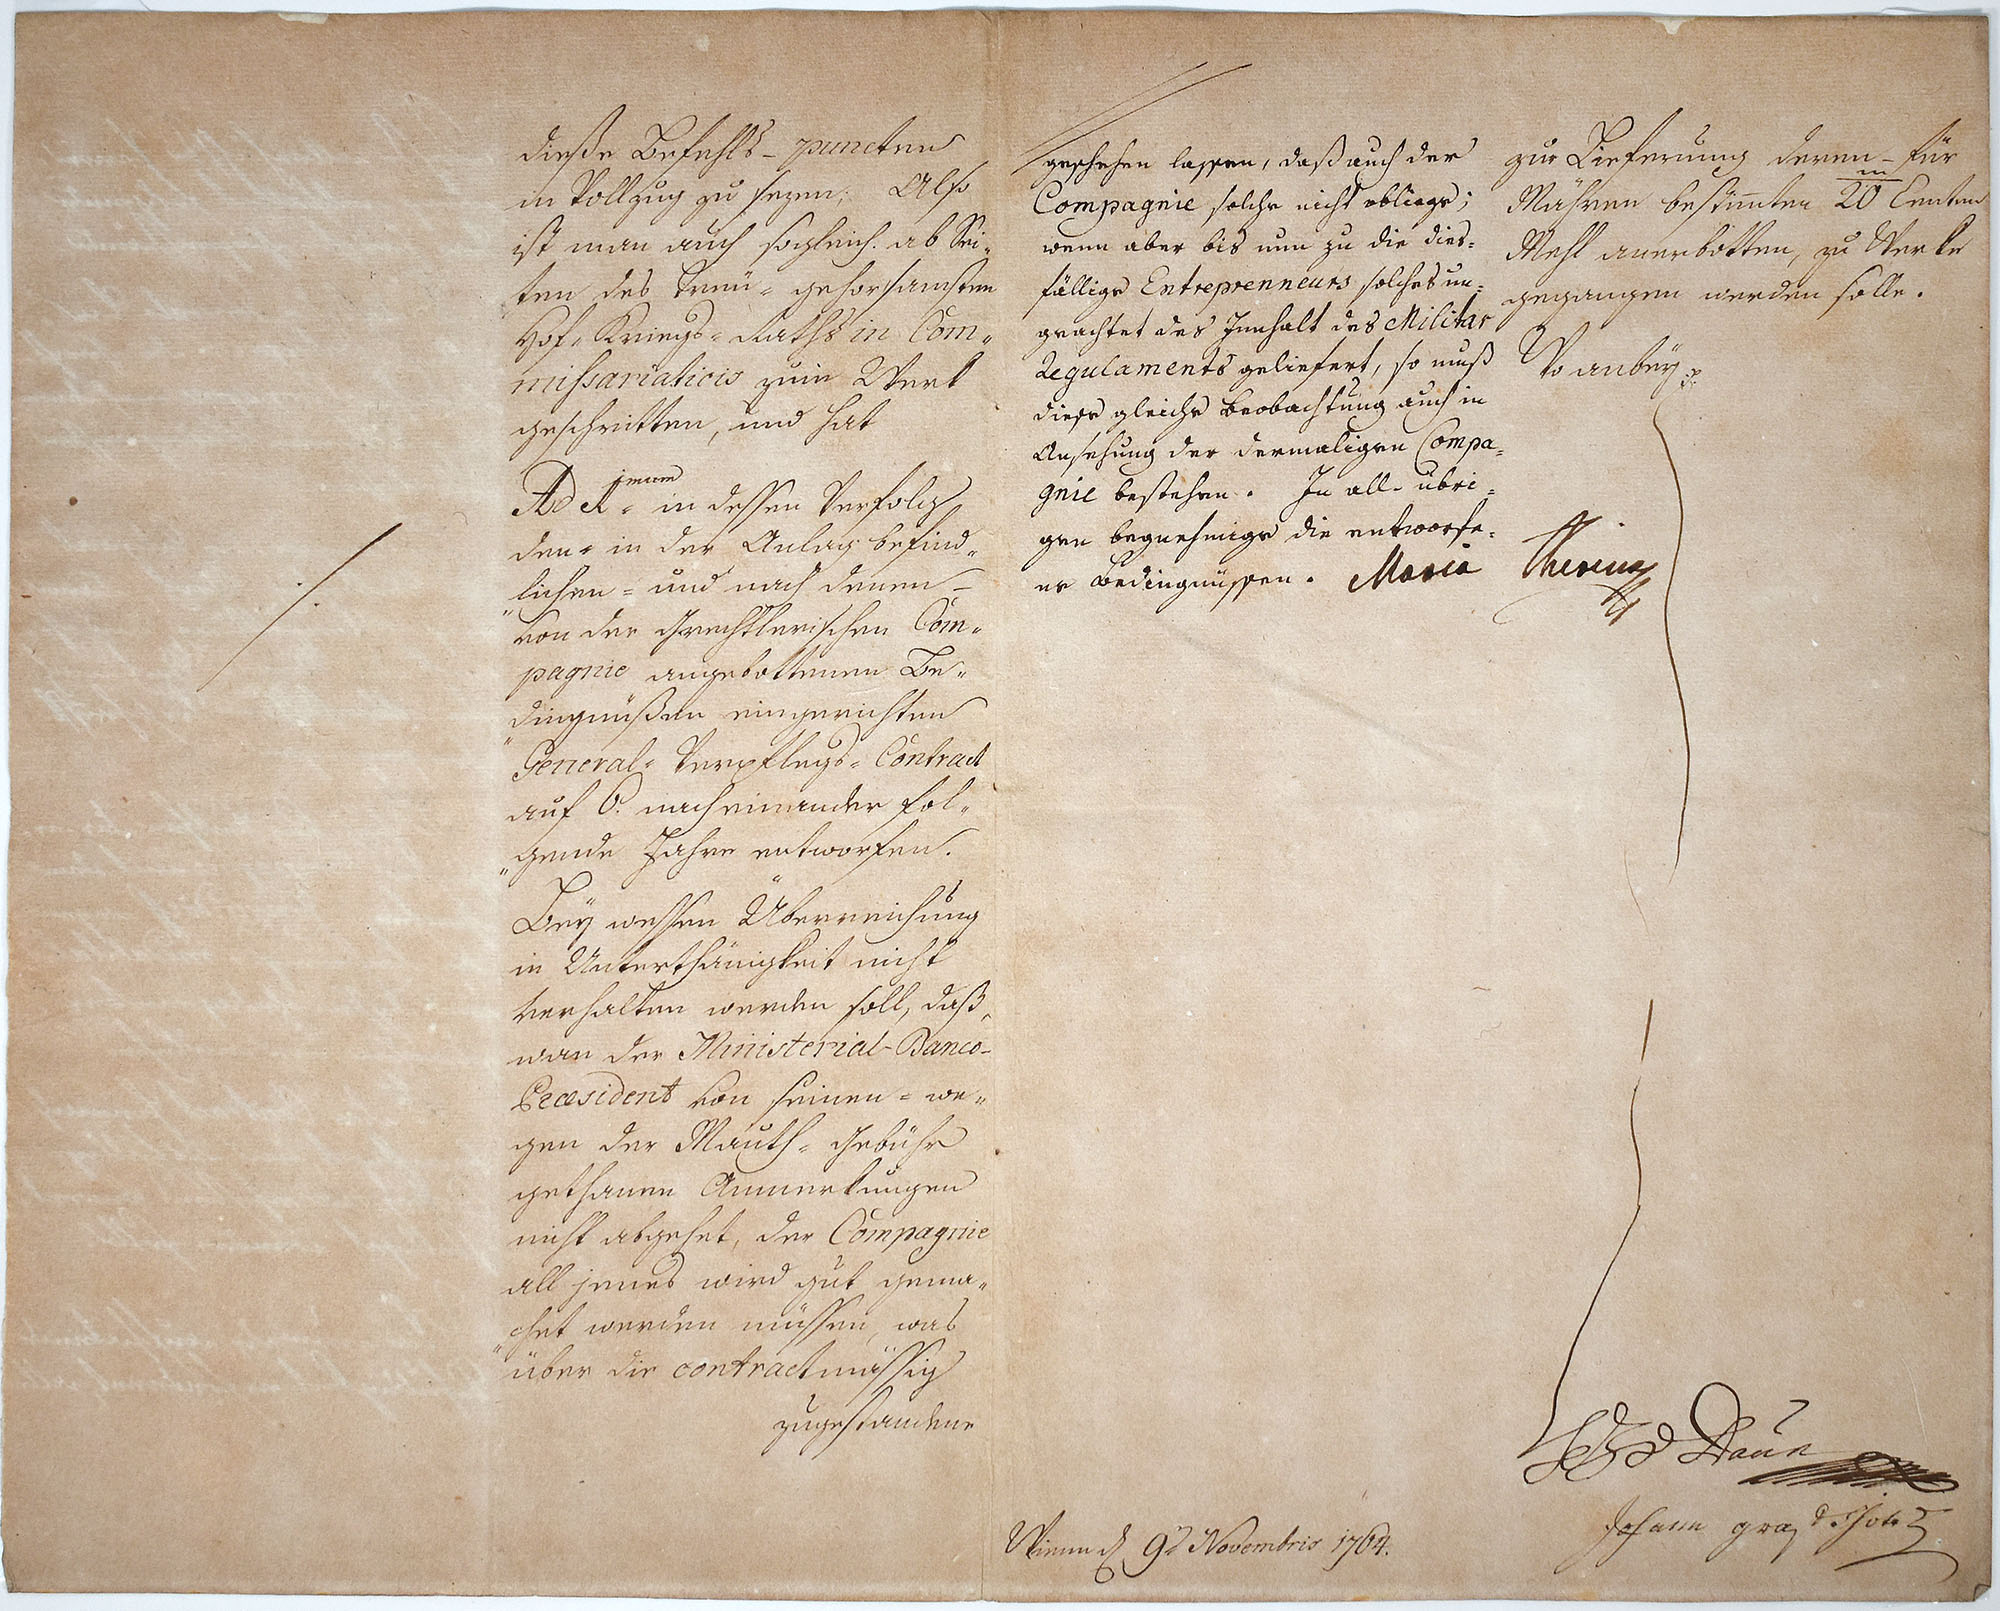 dieße Befehls-puncten
in Vollzug zu sezen; Also
ist man auch sogleich ab Sei-
ten des treü-gehorsamsten
Hof-Kriegs-Raths in Com-
missariaticis zum Werk
geschritten, und hat
Ad 1mum in dessen Verfolg
den- in der Anlag befind-
lichen- und nach denen-
von der Grechtlerischen Com-
pagnie angebottenen Be-
dingnüßen eingerichten
General-Verpflegs-Contract
auf 6. nacheinander fol-
gende Jahre entworfen.
Bey wessen Überreichung
in Unterthänigkeit nicht
verhalten werden soll, daß,
wan der Ministerial-Banco-
Præsident von seinen- we-
gen der Mauth-Gebühr
gethanen Anmerkungen
nicht abgehet, der Compagnie
all jenes wird gut gema-
chet werden müssen, was
über die contractmässig
zugestandene
geschehen lassen, daß auch der
Compagnie solche nicht obliege;
wenn aber bis nun zu die dies-
fällige Entreprenneurs solches un-
geachtet des Innhalt des Militar
Regulaments geliefert, so muß
diese gleiche Beobachtung auch in
Ansehung der dermaligen Compa-
gnie bestehen. In all-übri-
gen begnehmige die entworfe-
ne Bedingnüssen. Maria Theresia
zur Lieferung deren-für
Mähren bestimten 20 m Centen
Mehl anerbotten, zu Werke
gegangen werden solle.
Wo anbey
Daun
Johann graf
Wienn d 9t Novembris 1764.